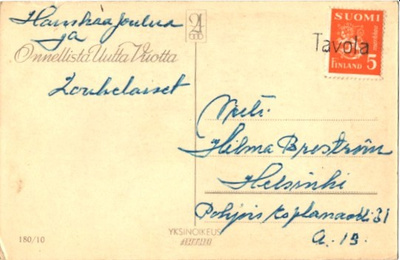 Hauskaa Joulua
ja
Onnellista Uutta Vuotta
Zouhelaiset
SUOMI
FINLAND 5
Tavola
Neiti
Hilma Breström
Helsinki
Pohjois Esplanaadi 31
A. 13.
YKSINOIKEUS
180/10